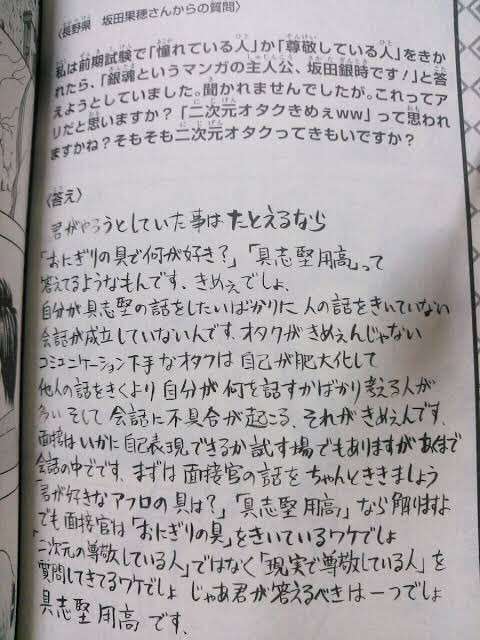 〈長野県　坂田果穂さんからの質問〉
私は前期試験で「憧れている人」か「尊敬している人」をきか
れたら、「銀魂というマンガの主人公、坂田銀時です!」と答
えようとしていました。聞かれませんでしたが。これってア
リだと思いますか?「二次元オタクきめぇww」って思われ
ますかね?そもそも二次元オタクってきもいですか?
〈答え〉
君がやろうとしていた事は たとえるなら
「おにぎりの具で何が好き?」「具志堅用高」って
答えてるようなもんです、きめぇでしょ、
自分が具志堅の話をしたいばかりに 人の話をきいていない
会話が成立していないんです、オタクがきめぇんじゃない
コミュニケーション下手なオタクは 自己が肥大化して
他人の話をきくより 自分が 何を話すかばかり考える人が
多い そして 会話に不具合が起こる、それが きめぇんです、
面接は いかに 自己表現できるか試す場でもありますが あくまで
会話の中でです、まずは 面接官の話を ちゃんとききましょう
「君が好きなアフロの具は?」「具志堅用高」 なら 解りますよ
でも 面接官は 「おにぎりの具」をきいているワケでしょ
「二次元の尊敬している人」ではなく「現実で尊敬している人」を
質問してきてるワケでしょ じゃあ君が答えるべきは 一つでしょ
具志堅用高 です、